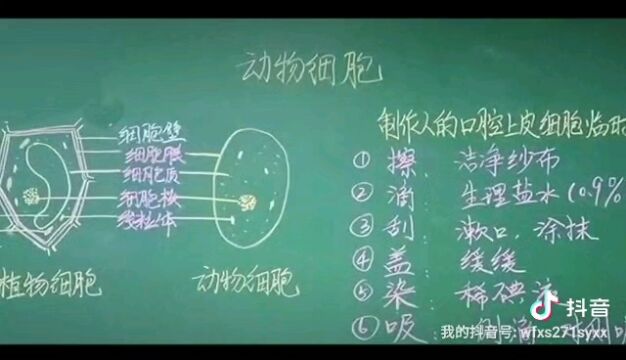 动物细胞
细胞壁
细胞膜
细胞质
细胞核
线粒体
植物细胞
动物细胞
制作人的口腔上皮细胞临时
① 擦: 洁净纱布
② 滴: 生理盐水(0.9%
③ 刮: 漱口、涂抹
④ 盖: 缓缓
⑤ 染: 稀碘液
⑥ 吸:
抖音
我的抖音号: wfxs271syxx